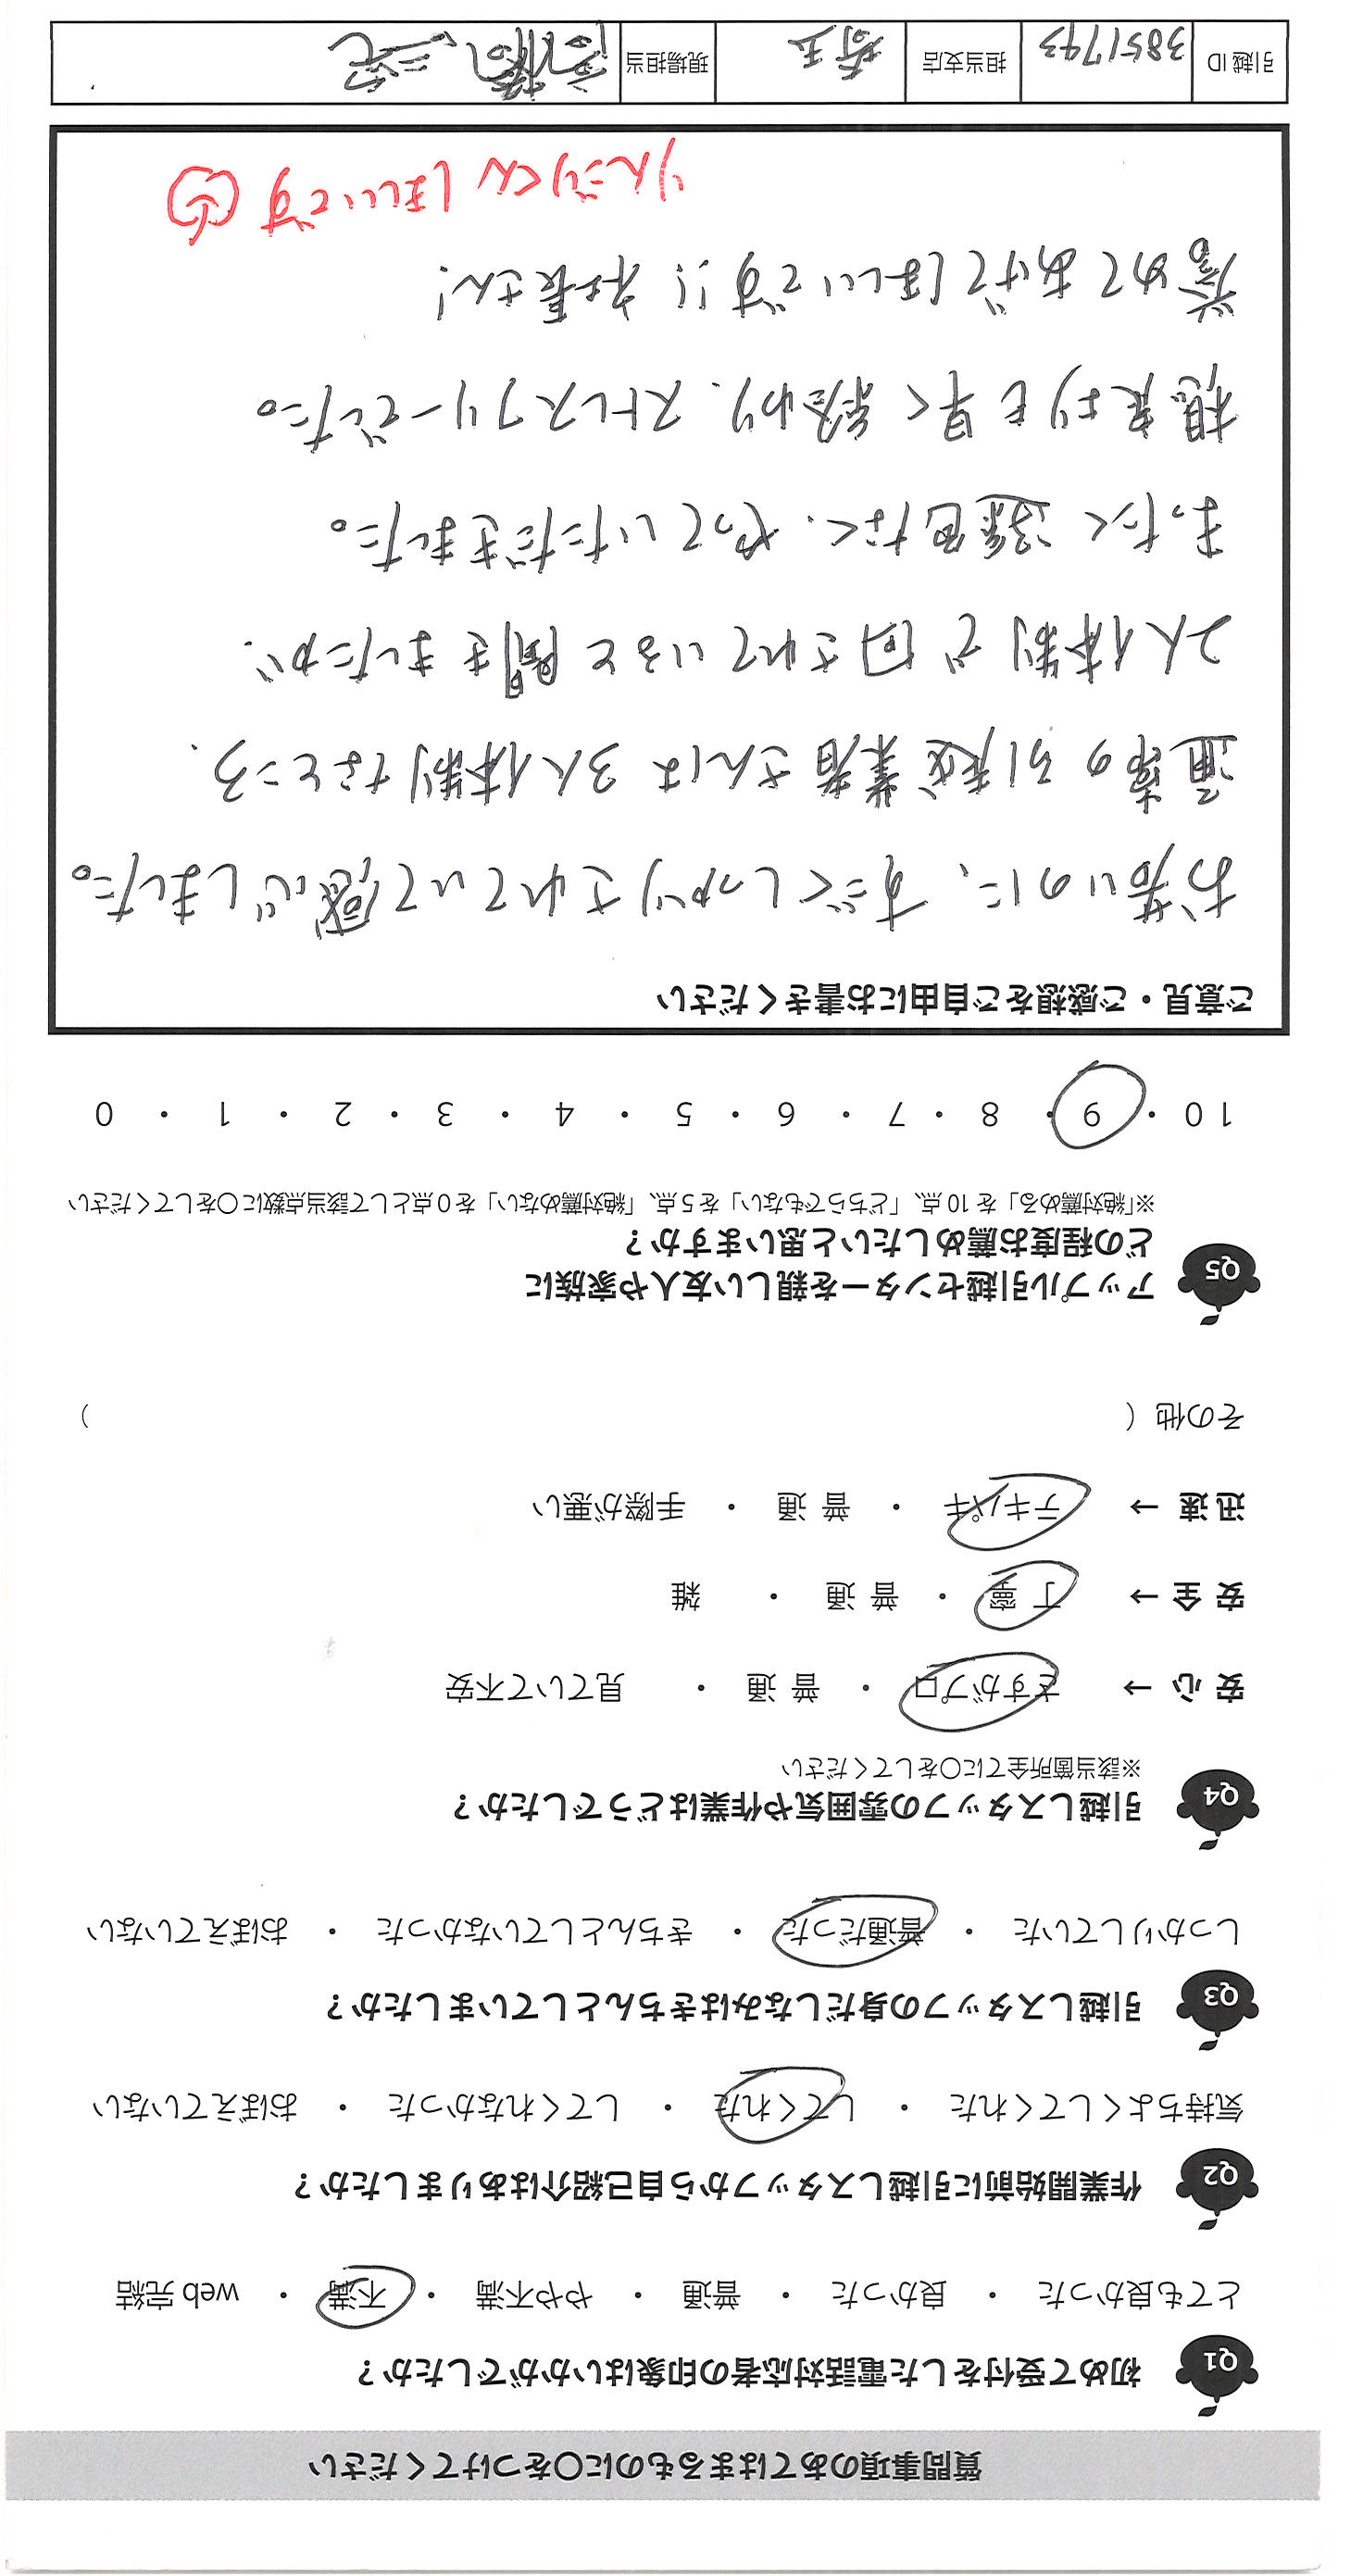 質問事項のあてはまるものに〇をつけてください
Q1 初めて受付をした電話対応者の印象はいかがでしたか？
とても良かった ・ 良かった ・ 普通 ・ やや不満 ・ 不満 ・ web 完結
Q2 作業開始前に引越しスタッフから自己紹介はありましたか？
気持ちよくしてくれた ・ してくれた ・ してくれなかった ・ おぼえていない
Q3 引越しスタッフの身だしなみはきちんとしていましたか？
しっかりしていた ・ 普通だった ・ きちんとしていなかった ・ おぼえていない
Q4 引越しスタッフの雰囲気や作業はどうでしたか？
※該当箇所全てに〇をしてください
安 心 → さすがプロ ・ 普 通 ・ 見ていて不安
安 全 → 丁 寧 ・ 普 通 ・ 雑
迅 速 → テキパキ ・ 普 通 ・ 手際が悪い
その他（ ）
Q5 アップル引越センターを親しい友人や家族に
どの程度お薦めしたいと思いますか？
※「絶対薦める」を 10 点、「どちらでもない」を 5 点、「絶対薦めない」を 0 点として該当点数に〇をしてください
10 ・ 9 ・ 8 ・ 7 ・ 6 ・ 5 ・ 4 ・ 3 ・ 2 ・ 1 ・ 0
ご意見・ご感想をご自由にお書きください
お若いのに、すごくしっかりされていて感心しました。
通常の引越業者さんは3人体制なところ、
2人体制で回されていると聞きましたが、
まったく遜色なく、やっていただきました。
想定よりも早く終わり、ストレスフリーでした。
誉めてあげてほしいです!! 社長さん!
りんごりくん ほしいです
引越 ID 3851743 担当支店 埼玉 現場担当 高橋 三宅